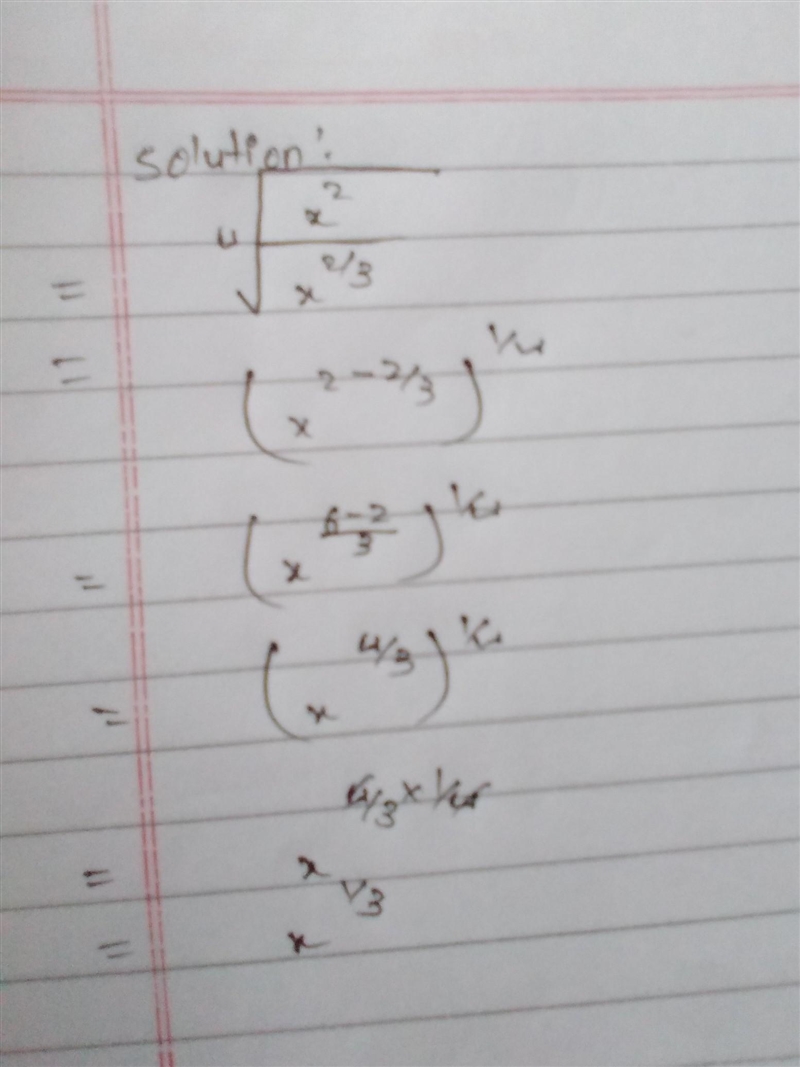 Solution:
= ⁴√(x² / x^(2/3))
= (x^(2-2/3))^(1/4)
= (x^((6-2)/3))^(1/4)
= (x^(4/3))^(1/4)
= x^(4/3×1/4)
= x^(1/3)